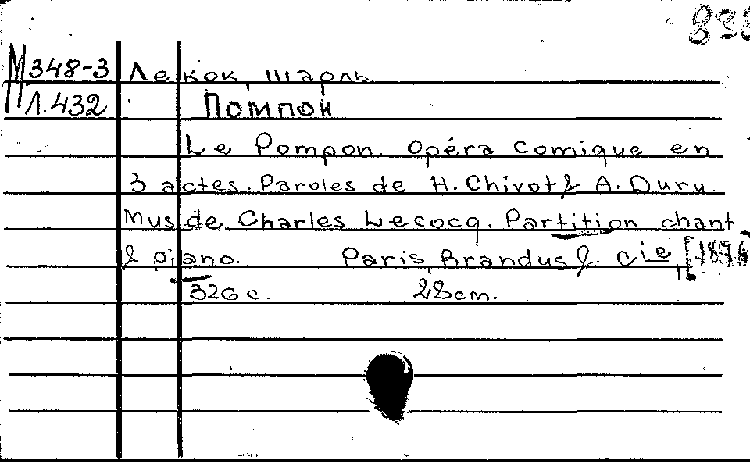 838
М 348-3 Лекок, Шарль
Л.432 Помпон
Le Pompon. Opéra comique en
3 actes. Paroles de H. Chivot & A. Duru.
Mus. de Charles Lecocq. Partition chant
& piano. Paris, Brandus & Cie,
326 с. 28cm.